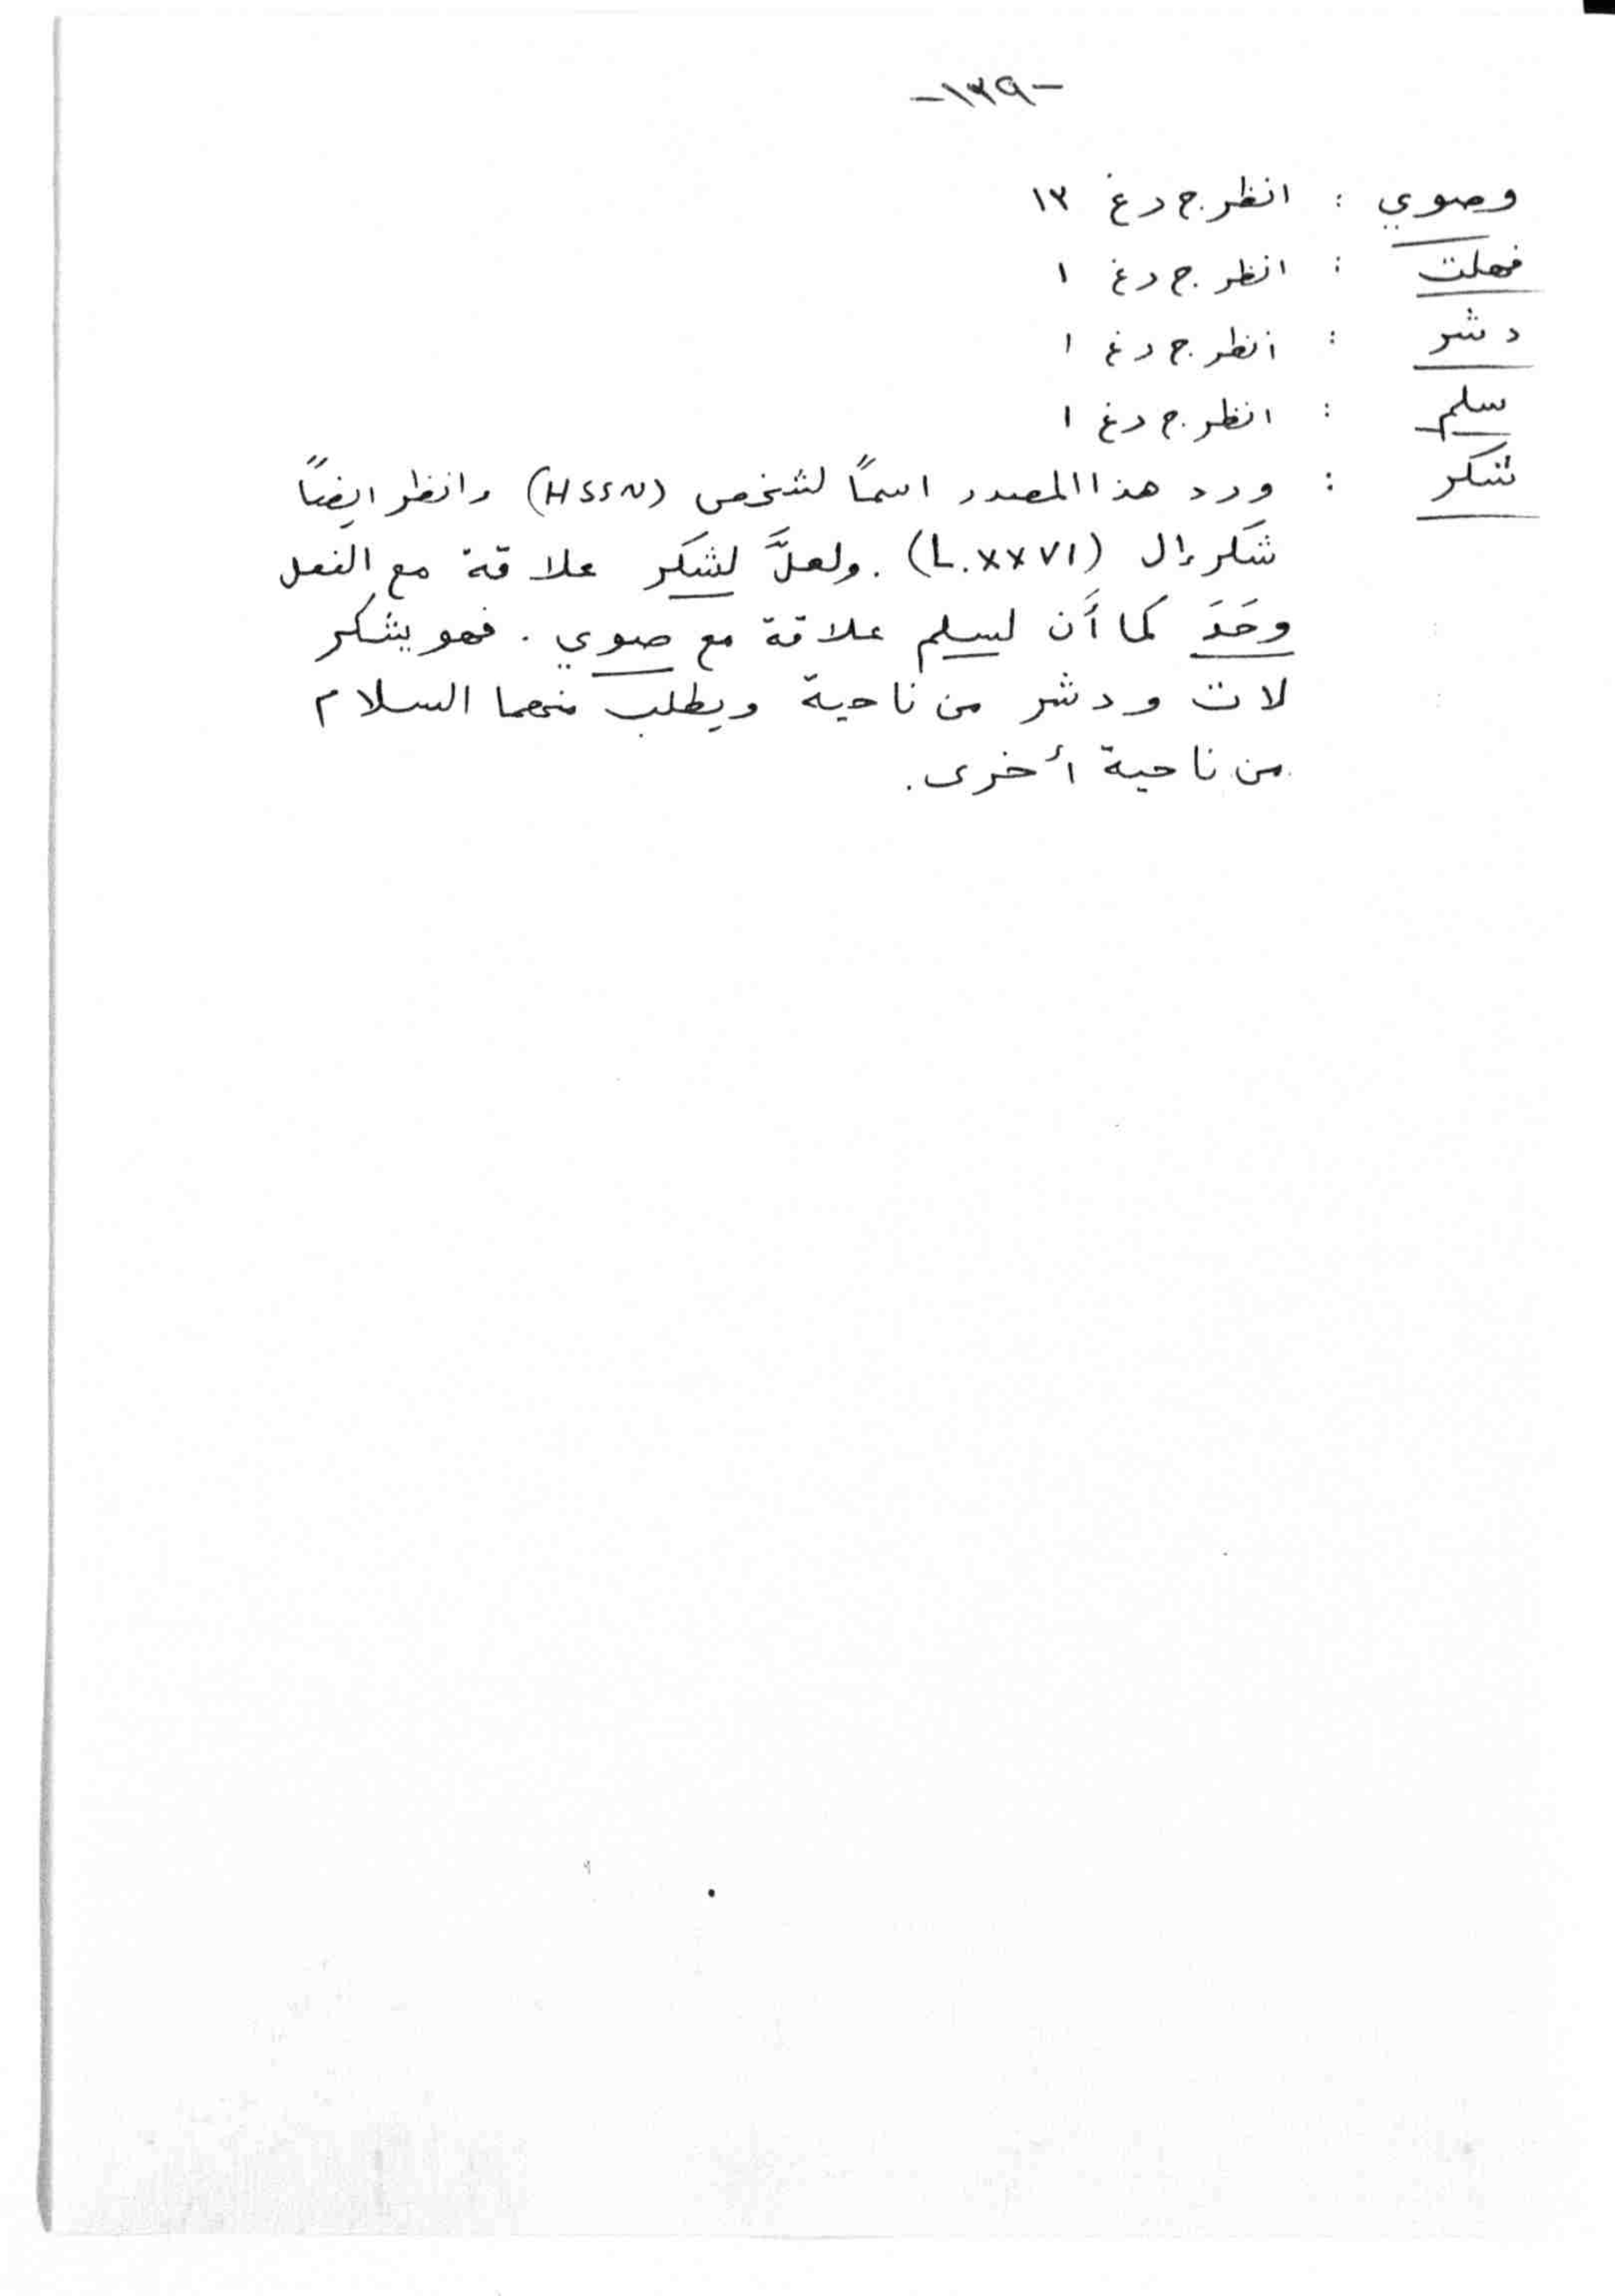 -١٣٩-
وصوي : انظر ج د غ ١٣
فهلت : انظر ج د غ ١
دشر : انظر ج د غ ١
سلم : انظر ج د غ ١
شكر : ورد هذا المصدر اسماً لشخص (HSSN) وانظر ايضاً
شكر إال (L.XXVI). ولعلَّ لشكر علاقة مع الفعل
وحَدَ كما أَن لسلم علاقة مع صوي. فهو يشكر
لات ودشر من ناحية ويطلب منهما السلام
من ناحية أخرى.